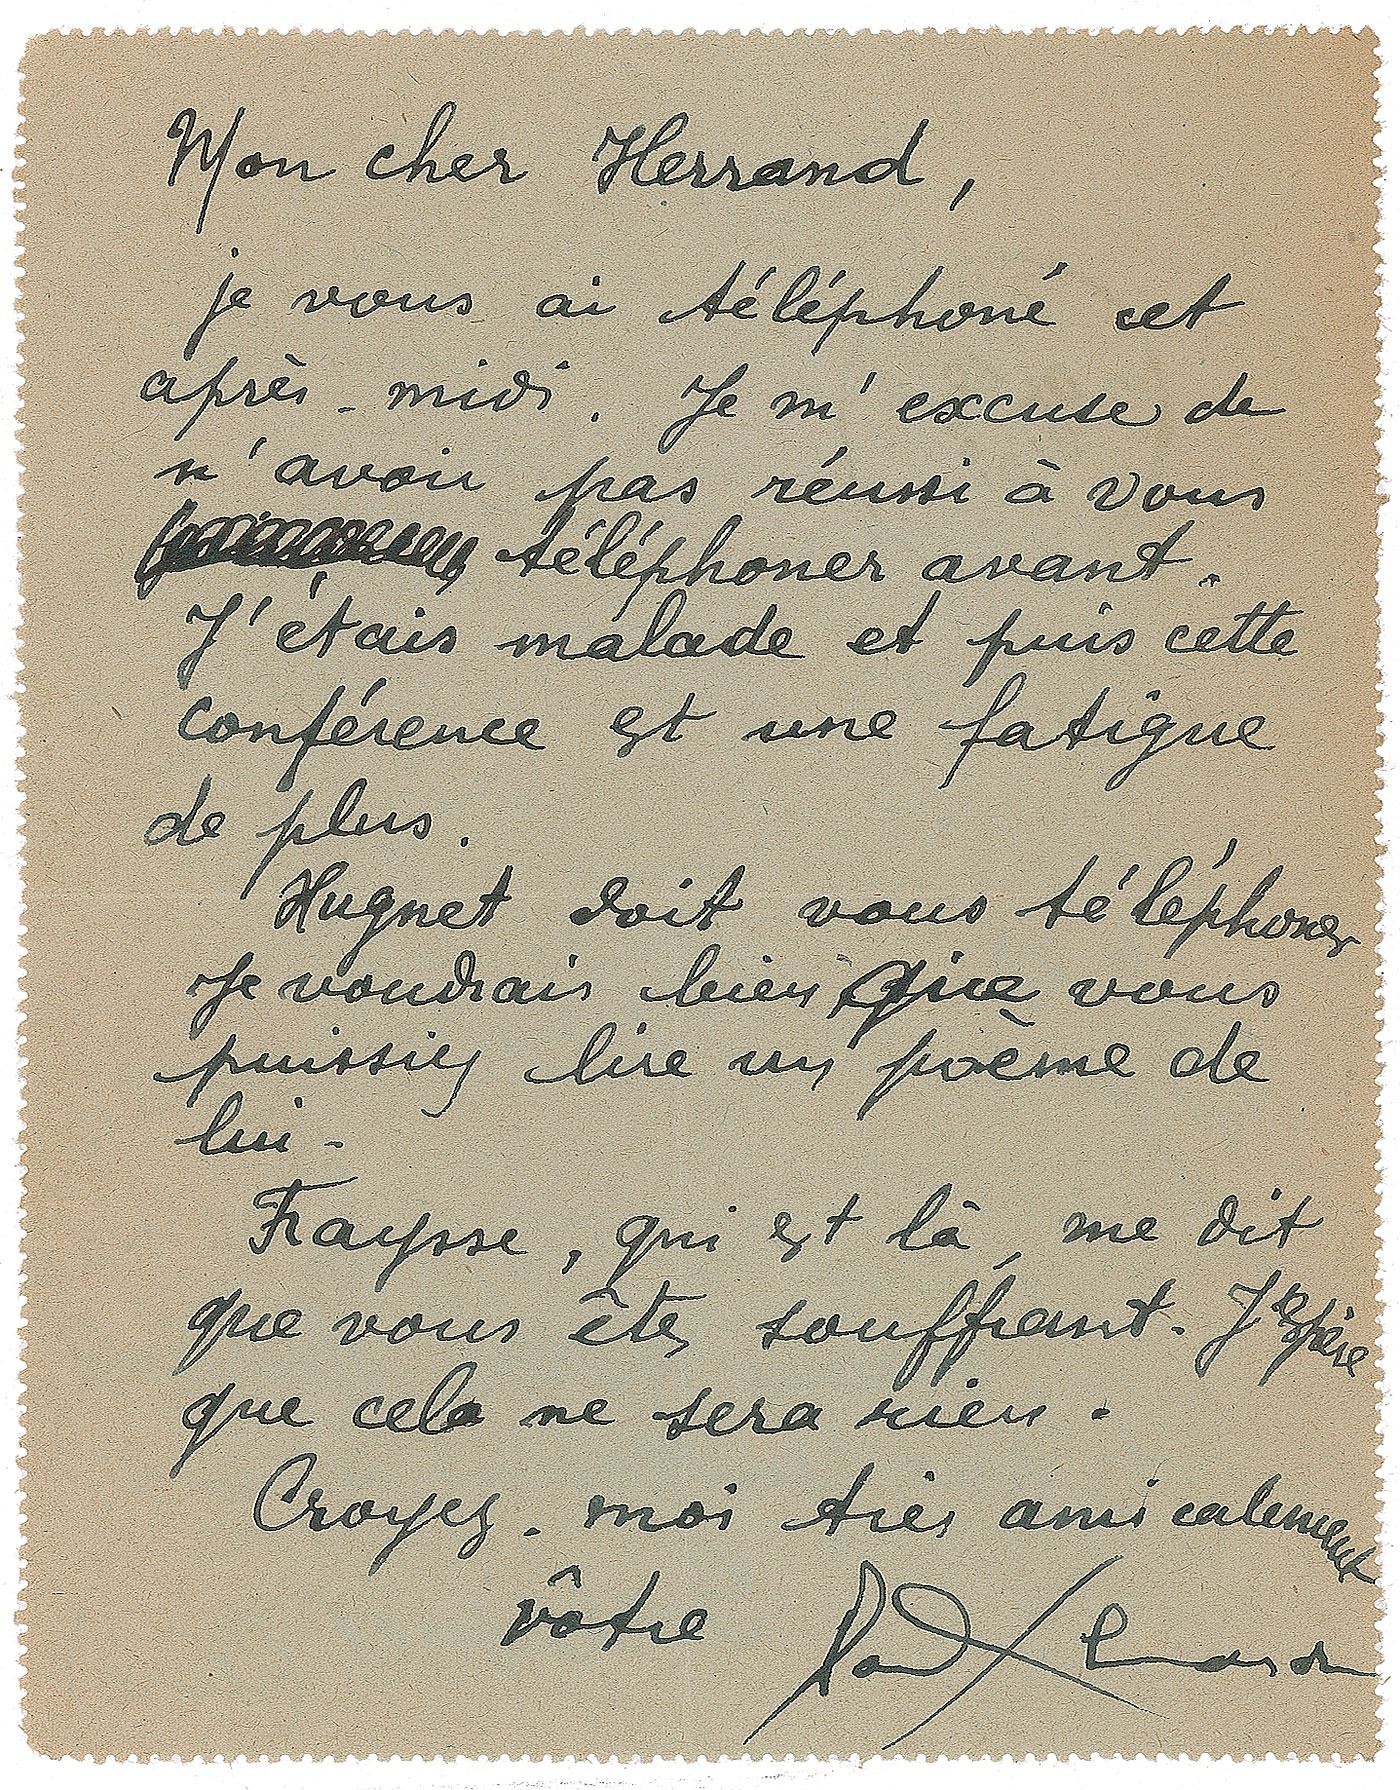 Mon cher Herrand,
je vous ai téléphoné cet
après-midi. Je m'excuse de
n'avoir pas réussi à vous
téléphoner avant.
J'étais malade et puis cette
conférence est une fatigue
de plus.
Hugnet doit vous téléphoner
Je voudrais bien que vous
puissiez lire un poème de
lui -
Fraysse, qui est là, me dit
que vous êtes souffrant. J'espère
que cela ne sera rien.
Croyez-moi très amicalement
vôtre Paul Eluard